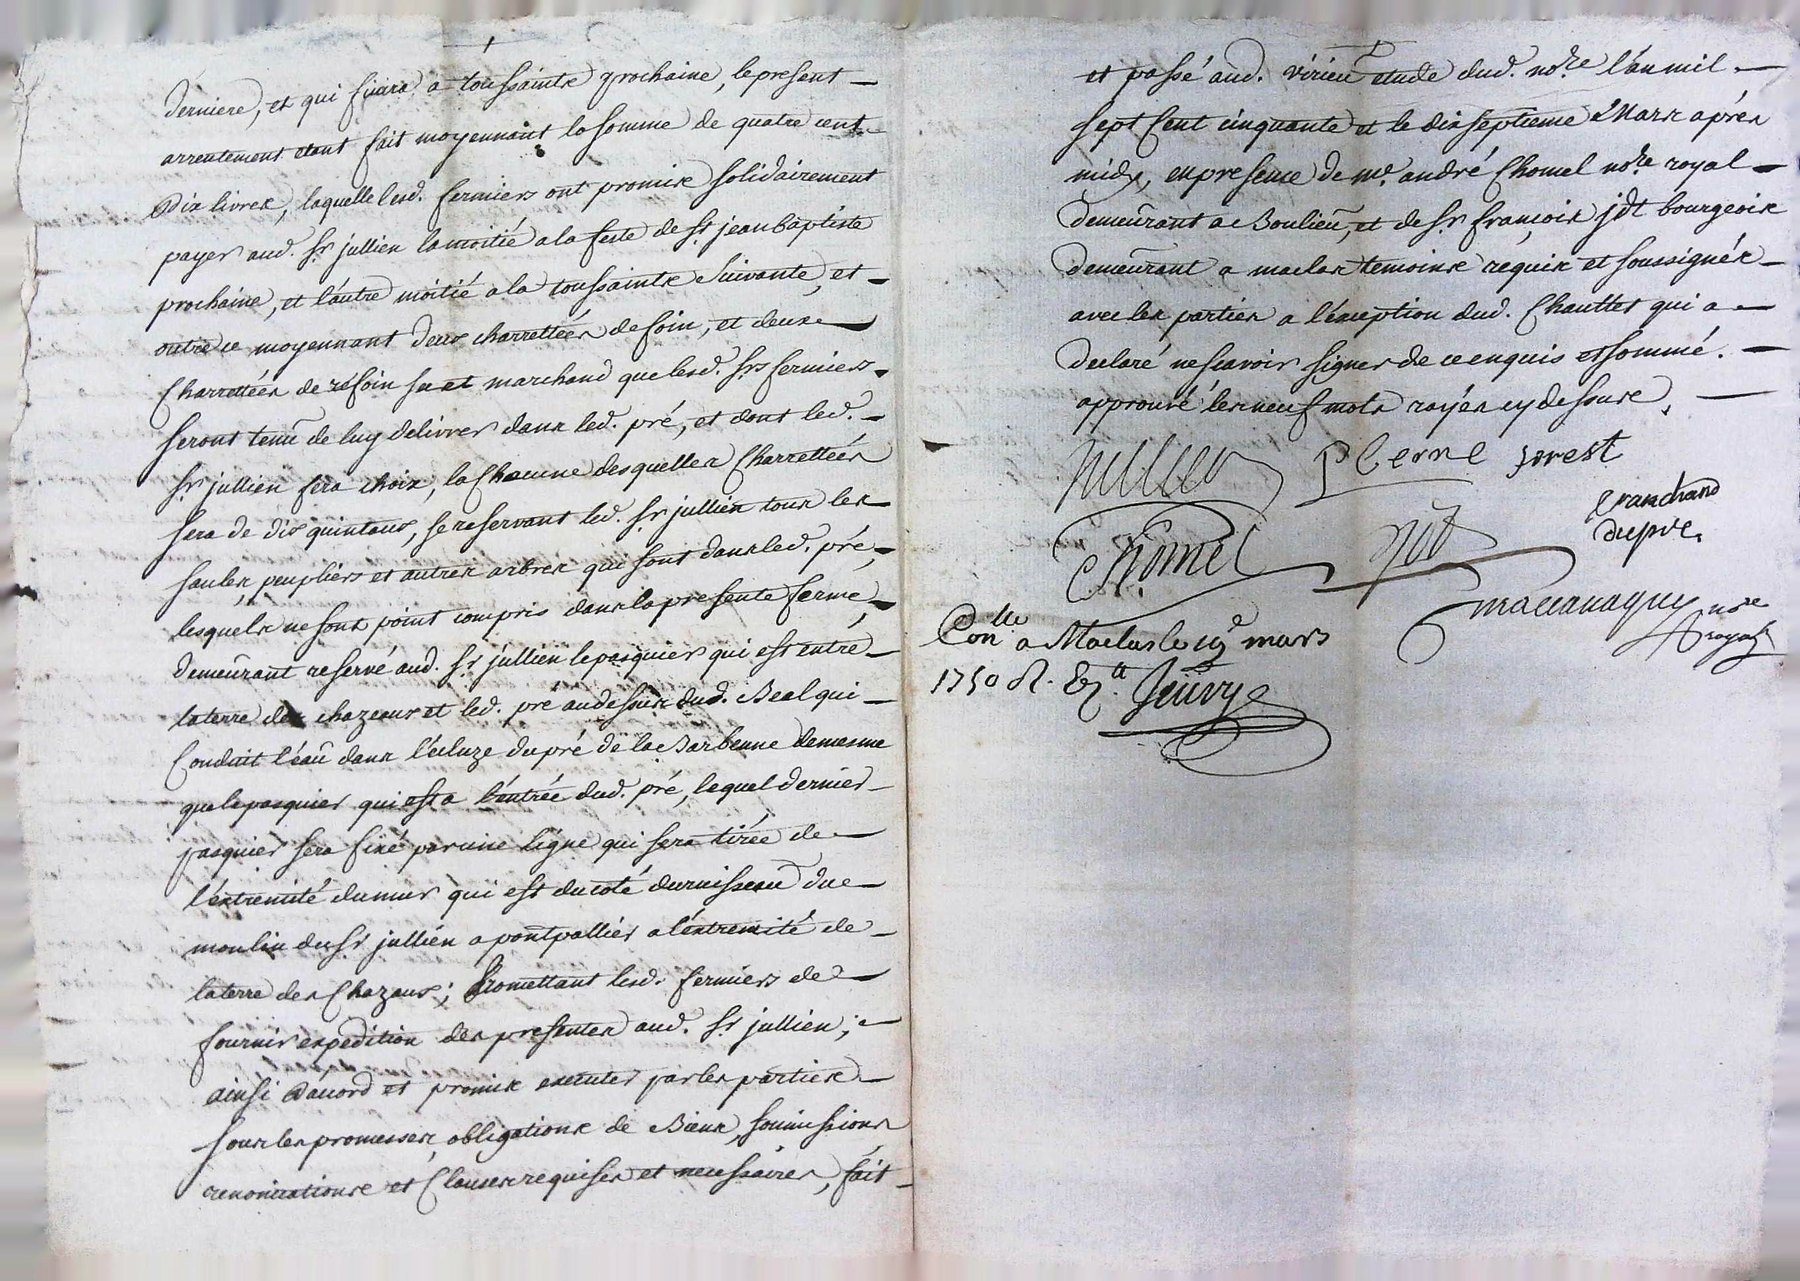 derniere, et qui finira a toussaints prochaine, le present
arrentement etant fait moyennant la somme de quatre cent
Dix livres, laquelle lesd. fermiers ont promis solidairement
payer aud. Sr jullien la moitié a la feste de St jean baptiste
prochaine, et l'autre moitié a la toussaints suivante, et
outre ce moyennant deux charrettées de foin, et deux
Charrettées de refoin sec et marchand que lesd. Srs fermiers
seront tenu de luy delivrer dans led. pré, et dont led.
Sr jullien fera choix, la Chacune desquelles Charrettées
sera de dix quintaux, se reservant led. Sr jullien tous les
saules, peupliers et autres arbres qui sont dans led. pré,
lesquels ne sont point compris dans la presente ferme,
demeurant reservé aud. Sr jullien le pasquier qui est entre
la terre des chazeaux et led. pré au dessus dud. Beal qui
Conduit l'eau dans l'ecluze du pré de la Barbenne de mesme
que le pasquier qui est a l'entrée dud. pré, lequel dernier
pasquier sera fixé par une ligne qui sera tirée de
l'extremité du mur qui est du coté du ruisseau du
moulin du Sr jullien a pontpallier a l'extremité de
la terre des Chazaux; Promettant lesd. fermiers de
fournir expedition des presentes aud. Sr jullien;
ainsi d'accord et promis executer par les parties
sous les promesses, obligations de Biens, soumissions
renonciations et Clauses requises et necessaires, fait
et passé aud. virieu etude dud. nore l'an mil
sept Cent cinquante et le dix septieme Mars aprés
midy, en presence de me. andré Chomel nore royal
demeurant a Boulieu, et de Sr françois jdt bourgeois
demeurant a maclas temoins requis et soussignés
avec les parties a l'exception dud. Chauttet qui a
declaré ne scavoir signer de ce enquis et sommé.
approuvé les neuf mots rayés cy dessus.
Jullien P Cerne forest
Chomel jdt Granchand
dupré.
maccanaguy nore
royal
Conlle a Maclas le 19 mars
1750 R.